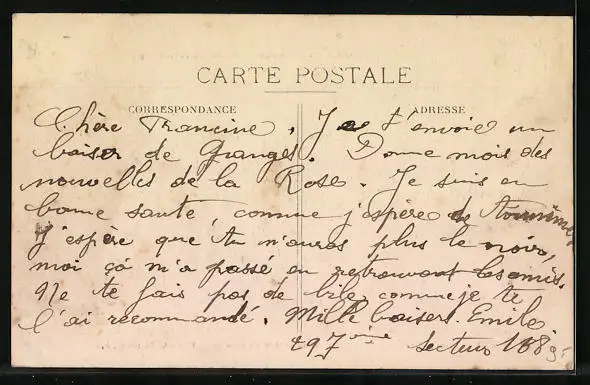 CARTE POSTALE
CORRESPONDANCE
ADRESSE
Chère Francine, Je t'envoie un
baiser de Granges. Donne mois des
nouvelles de la Rose. Je suis en
bonne santé, comme j'espère de
J'espère que tu n'auras plus le noir,
moi ça m'a passé en retrouvant les amis.
Ne te fais pas de bile, comme je te
l'ai recommandé. Mille baisers. Emile
197ème secteur